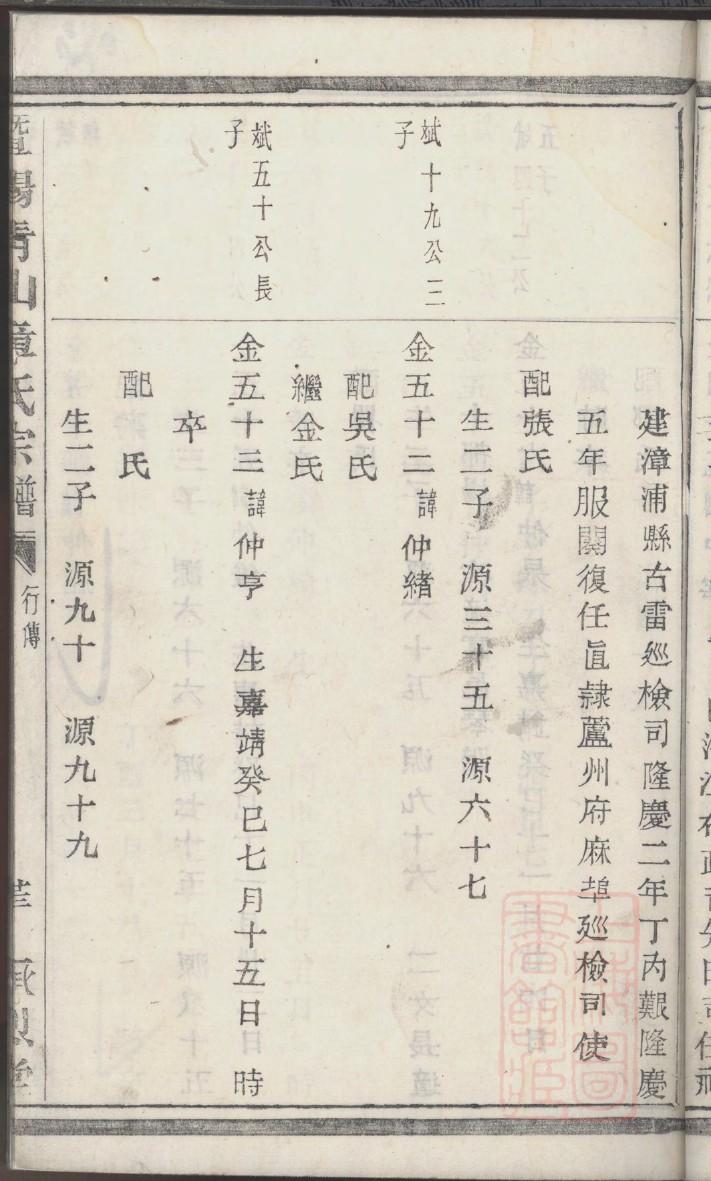 建漳浦縣古雷廵檢司隆慶二年丁內艱隆慶
五年服闋復任直隸蘆州府麻埠廵檢司使
配張氏
生二子 源三十五 源六十七
斌十九公三
子
金五十二諱仲緒
配吳氏
繼金氏
斌五十公長
子
金五十三諱仲亨 生嘉靖癸巳七月十五日 時
卒
配 氏
生二子 源九十 源九十九
暨陽青山章氏宗譜 行傳